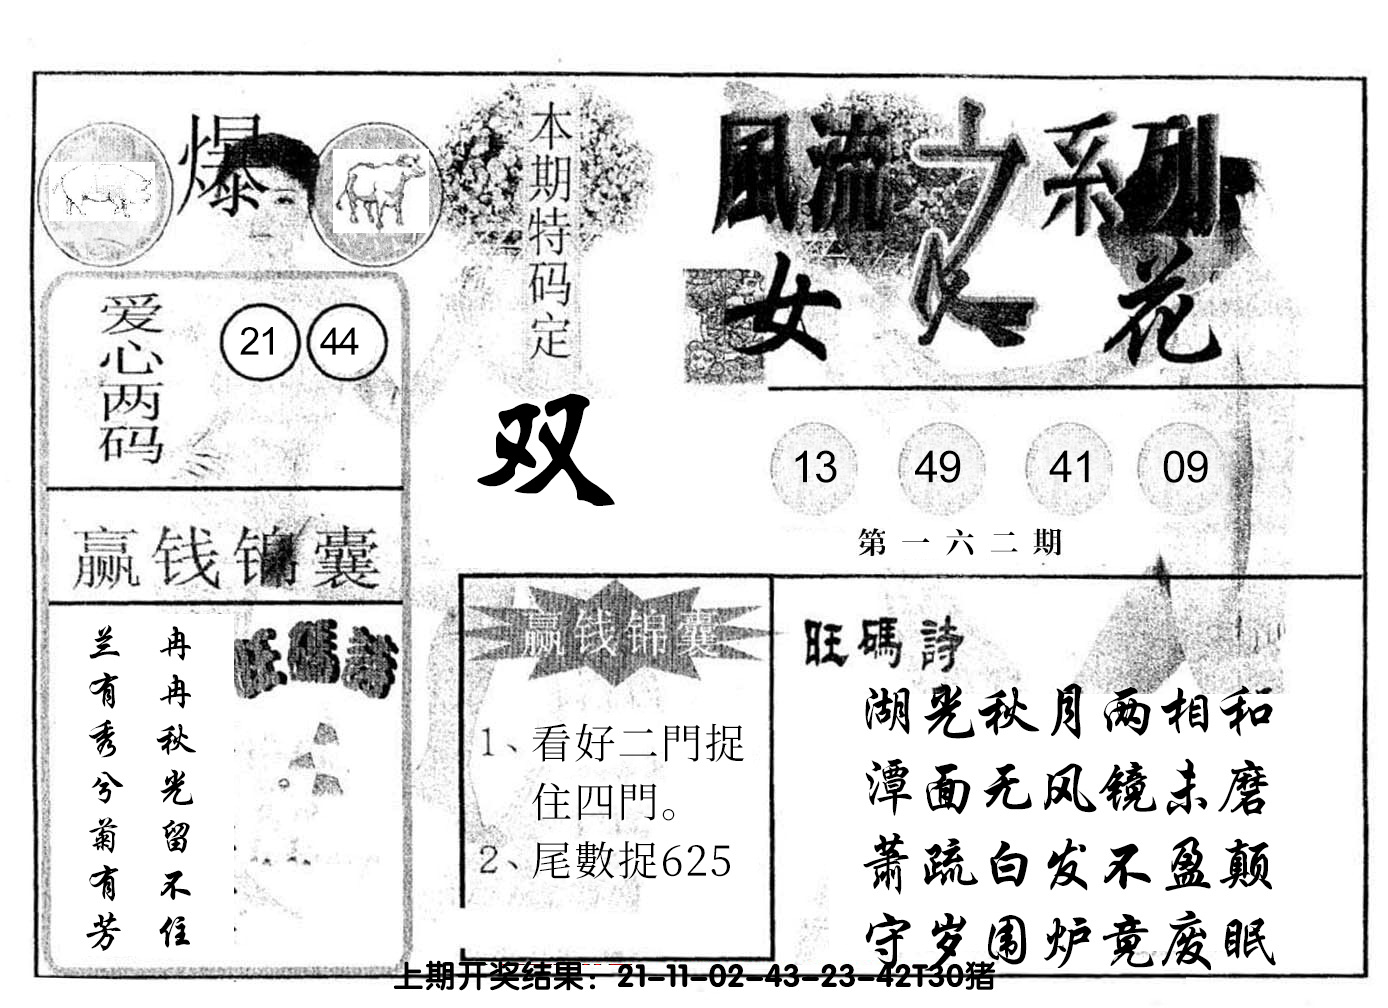 爆
爱心两码
21 44
赢钱锦囊
冉冉秋光留不住
兰有秀兮菊有芳
旺碼詩
本期特码定
双
風流之系列
女人花
13 49 41 09
第一六二期
赢钱锦囊
1、看好二門捉
住四門。
2、尾數捉625
旺碼詩
湖光秋月两相和
潭面无风镜未磨
萧疏白发不盈颠
守岁围炉竟废眠
上期开奖结果：21-11-02-43-23-42T30猪